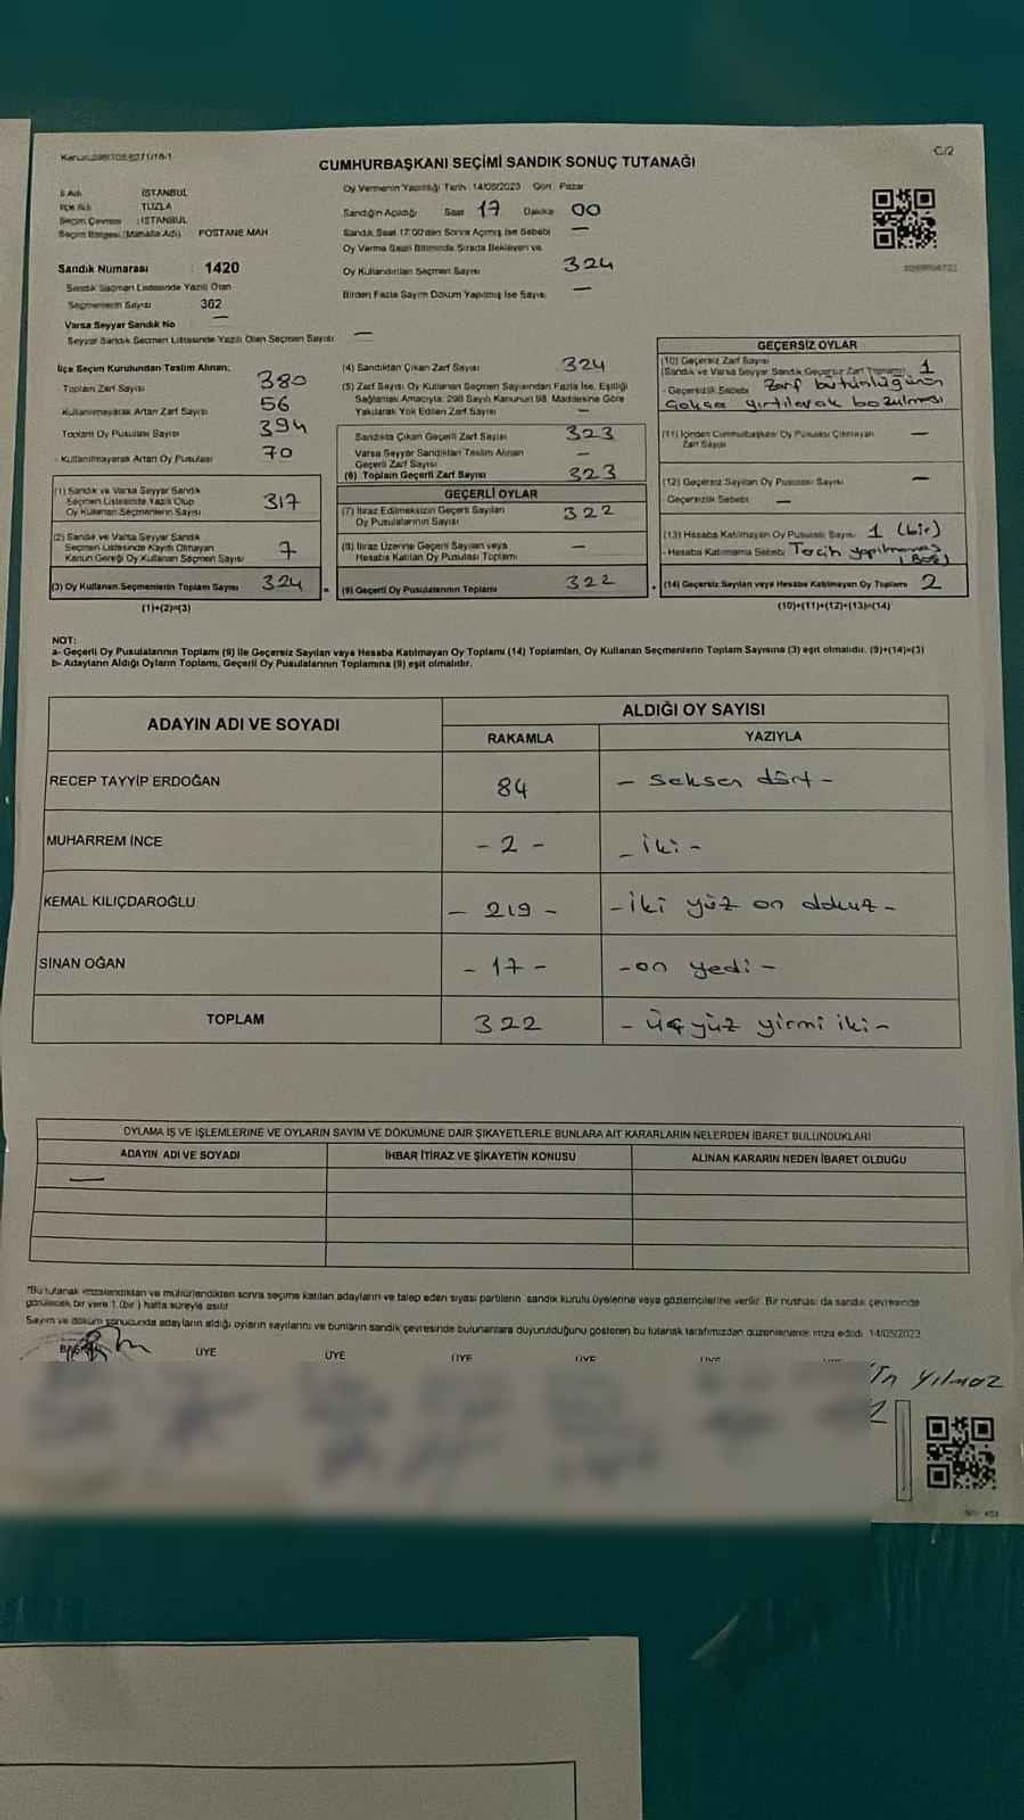 C/2
CUMHURBAŞKANI SEÇİMİ SANDIK SONUÇ TUTANAĞI
İli Adı İSTANBUL
İlçe Adı TUZLA
Seçim Çevresi : İSTANBUL
Seçim Bölgesi (Mahalle Adı) POSTANE MAH
Sandık Numarası 1420
Sandık Seçmen Listesinde Yazılı Olan
Seçmenlerin Sayısı 362
Varsa Seyyar Sandık No —
Seyyar Sandık Seçmen Listesinde Yazılı Olan Seçmen Sayısı —
Oy Vermenin Yapıldığı Tarih : 14/05/2023 Gün : Pazar
Sandığın Açıldığı Saat 17 Dakika 00
Sandık Saat 17:00'den Sonra Açılmış İse Sebebi —
Oy Verme Saati Bitiminde Sırada Bekleyen ve
Oy Kullandırılan Seçmen Sayısı 324
Birden Fazla Sayım Döküm Yapılmış İse Sayısı —
İlçe Seçim Kurulundan Teslim Alınan:
Toplam Zarf Sayısı 380
Kullanılmayarak Artan Zarf Sayısı 56
Toplam Oy Pusulası Sayısı 394
- Kullanılmayarak Artan Oy Pusulası 70
(1) Sandık ve Varsa Seyyar Sandık
Seçmen Listesinde Yazılı Olup
Oy Kullanan Seçmenlerin Sayısı 317
(2) Sandık ve Varsa Seyyar Sandık
Seçmen Listesinde Kaydı Olmayan
Kanun Gereği Oy Kullanan Seçmen Sayısı 7
(3) Oy Kullanan Seçmenlerin Toplam Sayısı 324
(1)+(2)=(3)
(4) Sandıktan Çıkan Zarf Sayısı 324
(5) Zarf Sayısı Oy Kullanan Seçmen Sayısından Fazla İse, Eşitliği
Sağlamak Amacıyla; 298 Sayılı Kanunun 98. Maddesine Göre
Yakılarak Yok Edilen Zarf Sayısı —
Sandıkta Çıkan Geçerli Zarf Sayısı 323
Varsa Seyyar Sandıktan Teslim Alınan
Geçerli Zarf Sayısı —
(6) Toplam Geçerli Zarf Sayısı 323
GEÇERLİ OYLAR
(7) İtiraz Edilmeksizin Geçerli Sayılan
Oy Pusulalarının Sayısı 322
(8) İtiraz Üzerine Geçerli Sayılan veya
Hesaba Katılan Oy Pusulası Toplamı —
(9) Geçerli Oy Pusulalarının Toplamı 322
GEÇERSİZ OYLAR
(10) Geçersiz Zarf Sayısı
(Sandık ve Varsa Seyyar Sandık Geçersiz Zarf Toplamı) 1
- Geçersizlik Sebebi Zarf bütünlüğünün
çokça yırtılarak bozulması
(11) İçinden Cumhurbaşkanı Oy Pusulası Çıkmayan
Zarf Sayısı —
(12) Geçersiz Sayılan Oy Pusulası Sayısı —
Geçersizlik Sebebi —
(13) Hesaba Katılmayan Oy Pusulası Sayısı 1 (bir)
- Hesaba Katılmama Sebebi Tercih yapılmamış
(Boş)
(14) Geçersiz Sayılan veya Hesaba Katılmayan Oy Toplamı 2
(10)+(11)+(12)+(13)=(14)
NOT:
a- Geçerli Oy Pusulalarının Toplamı (9) ile Geçersiz Sayılan veya Hesaba Katılmayan Oy Toplamı (14) Toplamları, Oy Kullanan Seçmenlerin Toplam Sayısına (3) eşit olmalıdır. (9)+(14)=(3)
b- Adayların Aldığı Oyların Toplamı, Geçerli Oy Pusulalarının Toplamına (9) eşit olmalıdır.
ADAYIN ADI VE SOYADI ALDIĞI OY SAYISI
RAKAMLA YAZIYLA
RECEP TAYYİP ERDOĞAN 84 - seksen dört -
MUHARREM İNCE - 2 - - iki -
KEMAL KILIÇDAROĞLU - 219 - - iki yüz on dokuz -
SİNAN OĞAN - 17 - - on yedi -
TOPLAM 322 - üç yüz yirmi iki -
OYLAMA İŞ VE İŞLEMLERİNE VE OYLARIN SAYIM VE DÖKÜMÜNE DAİR ŞİKAYETLERLE BUNLARA AİT KARARLARIN NELERDEN İBARET BULUNDUKLARI
ADAYIN ADI VE SOYADI İHBAR İTİRAZ VE ŞİKAYETİN KONUSU ALINAN KARARIN NEDEN İBARET OLDUĞU
—
"Bu tutanak imzalandıktan ve mühürlendikten sonra seçime katılan adayların ve talep eden siyasi partilerin sandık kurulu üyelerine veya gözlemcilerine verilir. Bir nüshası da sandık çevresinde
görülecek bir yere 1 (bir) hafta süreyle asılır
Sayım ve döküm sonucunda adayların aldığı oyların sayılarını ve bunların sandık çevresinde bulunanlara duyurulduğunu gösteren bu tutanak tarafımızdan düzenlenerek imza edildi. 14/05/2023
BAŞKAN ÜYE ÜYE ÜYE ÜYE ÜYE
Yılmaz